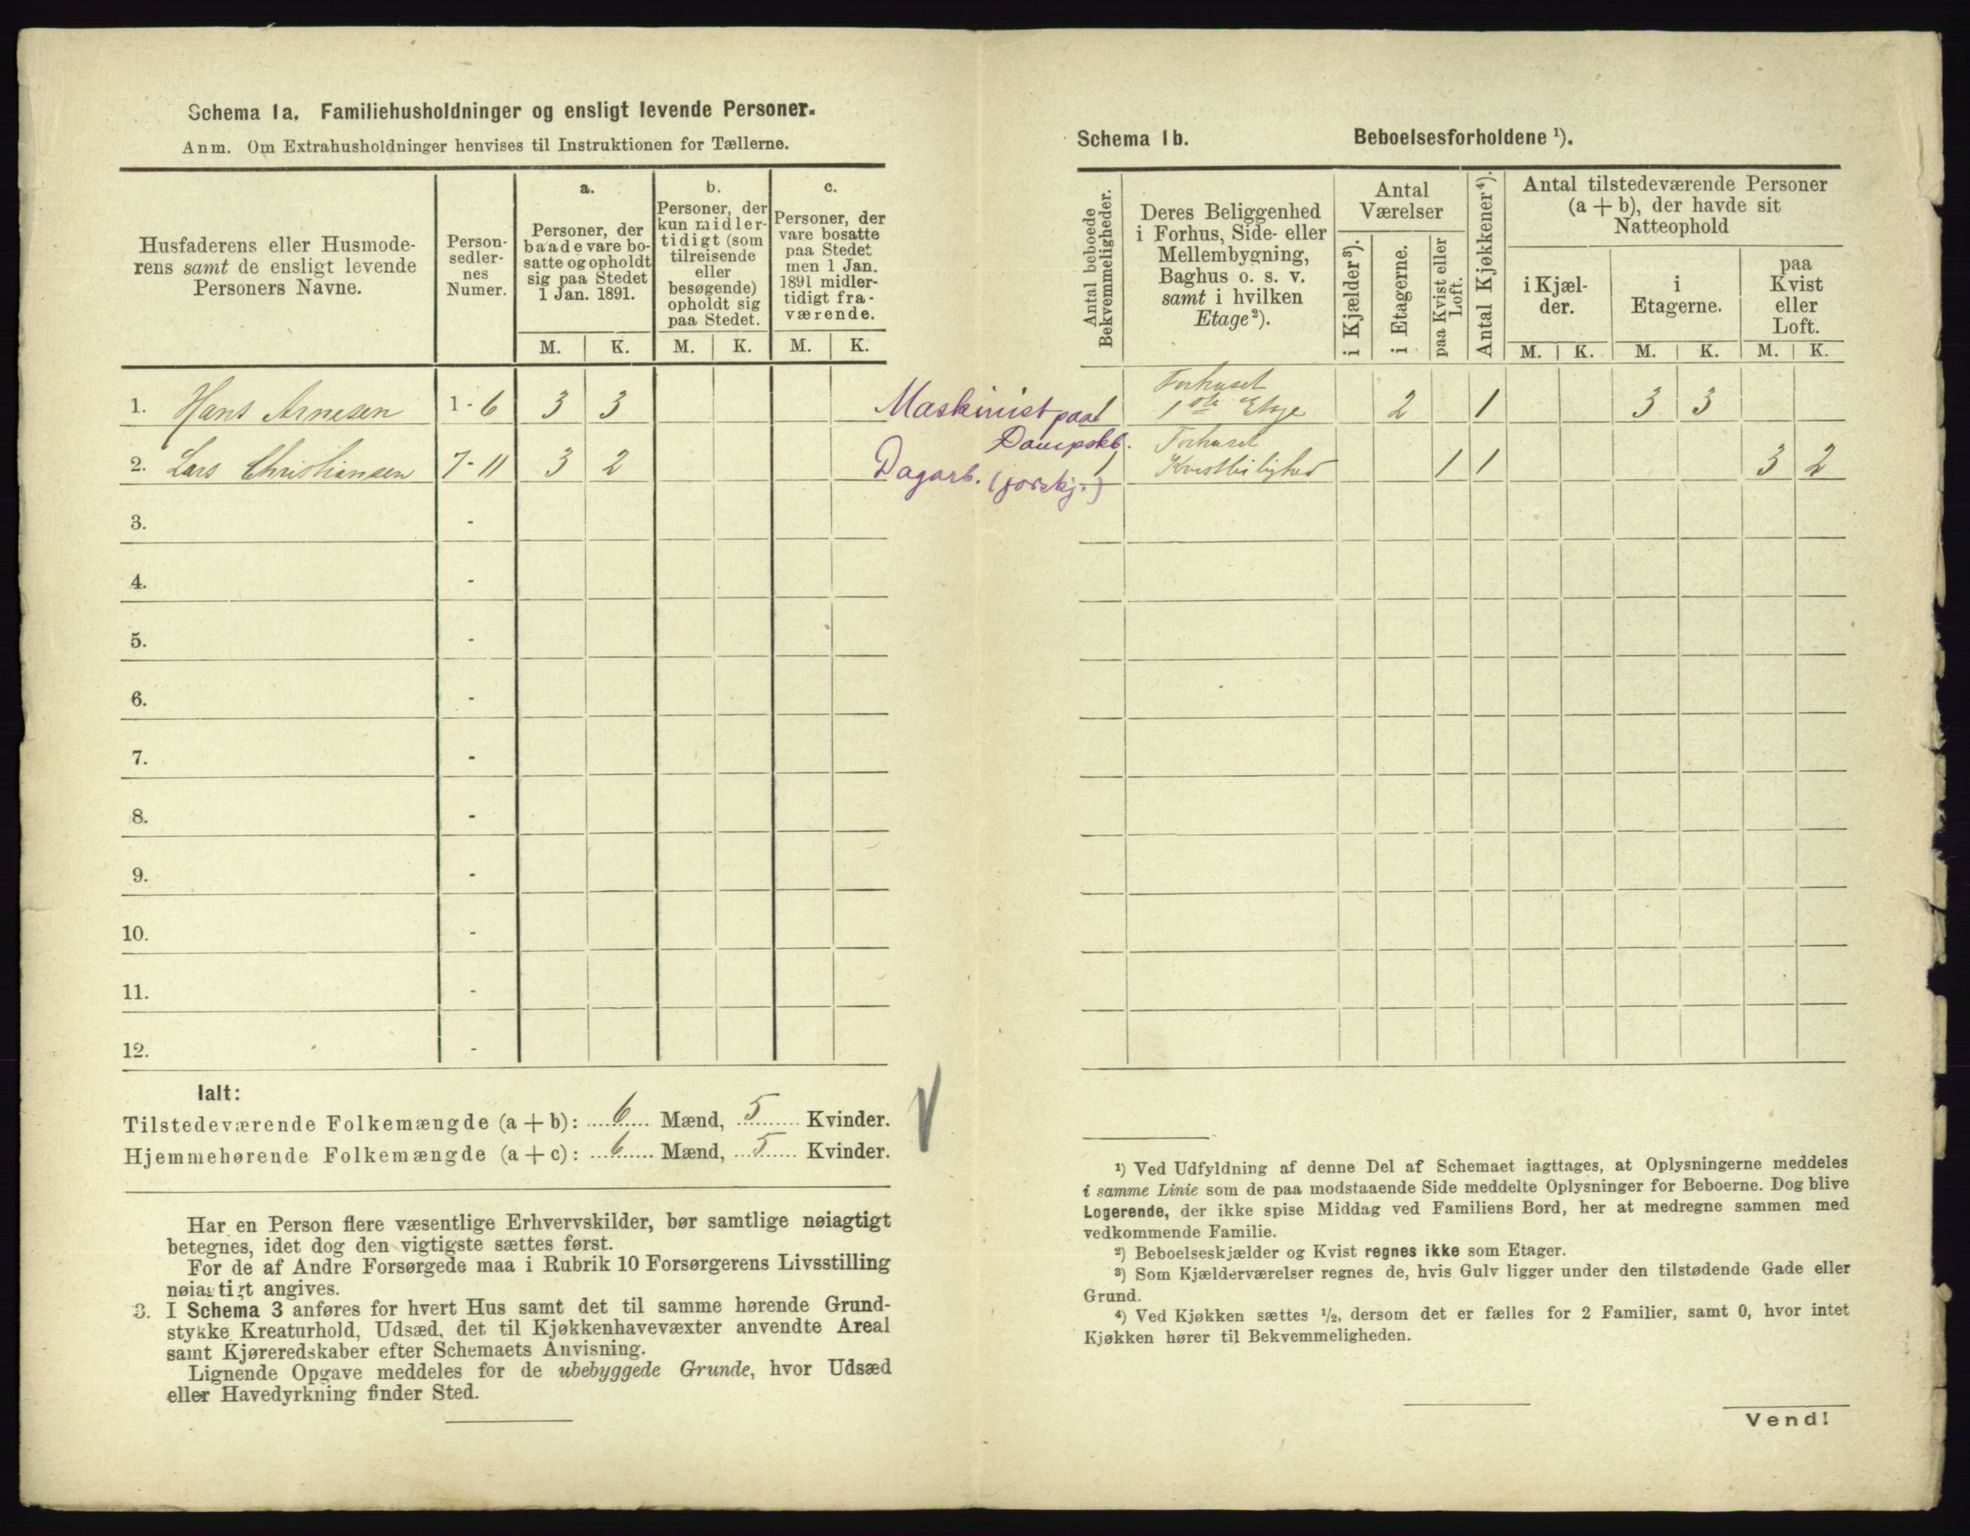 Schema 1a. Familiehusholdninger og ensligt levende Personer.
Anm. Om Extrahusholdninger henvises til Instruktionen for Tællerne.
Husfaderens eller Husmode-
rens samt de ensligt levende
Personers Navne.
Person-
sedler-
nes
Numer.
a.
Personer, der
baade vare bo-
satte og opholdt
sig paa Stedet
1 Jan. 1891.
b.
Personer, der
kun midler-
tidigt (som
tilreisende
eller
besøgende)
opholdt sig
paa Stedet.
c.
Personer, der
vare bosatte
paa Stedet
men 1 Jan.
1891 midler-
tidigt fra-
værende.
M. K. M. K. M. K.
1. Hans Arnesen 1-6 3 3
2. Lars Christiansen 7-11 3 2
3. -
4. -
5. -
6. -
7. -
8. -
9. -
10. -
11. -
12. -
Ialt:
Tilstedeværende Folkemængde (a + b): 6 Mænd, 5 Kvinder.
Hjemmehørende Folkemængde (a + c): 6 Mænd, 5 Kvinder.
Har en Person flere væsentlige Erhvervskilder, bør samtlige nøiagtigt
betegnes, idet dog den vigtigste sættes først.
For de af Andre Forsørgede maa i Rubrik 10 Forsørgerens Livsstilling
nøiagtigt angives.
3. I Schema 3 anføres for hvert Hus samt det til samme hørende Grund-
stykke Kreaturhold, Udsæd, det til Kjøkkenhavevæxter anvendte Areal
samt Kjøreredskaber efter Schemaets Anvisning.
Lignende Opgave meddeles for de ubebyggede Grunde, hvor Udsæd
eller Havedyrkning finder Sted.
Schema 1b. Beboelsesforholdene ¹).
Antal beboede
Bekvemmeligheder.
Deres Beliggenhed
i Forhus, Side- eller
Mellembygning,
Baghus o. s. v.
samt i hvilken
Etage²).
Antal
Værelser
i Kjælder³).
i Etagerne.
paa Kvist eller
Loft.
Antal Kjøkkener⁴).
Antal tilstedeværende Personer
(a + b), der havde sit
Natteophold
i Kjæl-
der.
i
Etagerne.
paa
Kvist
eller
Loft.
M. K. M. K. M. K.
Maskinist paa
Dampskb.
1 Forhuset
1ste Etage 2 1 3 3
Dagarb. (jordskj.)
1 Forhuset
Kvistbeilighed 1 1 3 2
¹) Ved Udfyldning af denne Del af Schemaet iagttages, at Oplysningerne meddeles
i samme Linie som de paa modstaaende Side meddelte Oplysninger for Beboerne. Dog blive
Logerende, der ikke spise Middag ved Familiens Bord, her at medregne sammen med
vedkommende Familie.
²) Beboelseskjælder og Kvist regnes ikke som Etager.
³) Som Kjælderværelser regnes de, hvis Gulv ligger under den tilstødende Gade eller
Grund.
⁴) Ved Kjøkken sættes ¹/₂, dersom det er fælles for 2 Familier, samt 0, hvor intet
Kjøkken hører til Bekvemmeligheden.
Vend!